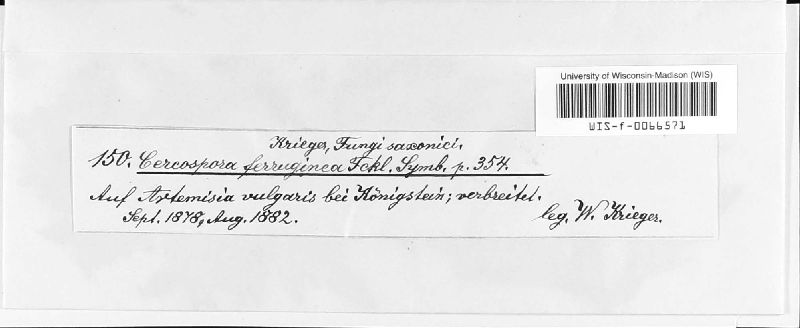 University of Wisconsin-Madison (WIS)
WIS-f-0066571
Krieger, Fungi saxonici.
150. Cercospora ferruginea Fckl. Symb. p. 354.
Auf Artemisia vulgaris bei Königstein; verbreitet.
Sept. 1878, Aug. 1882.
leg. W. Krieger.